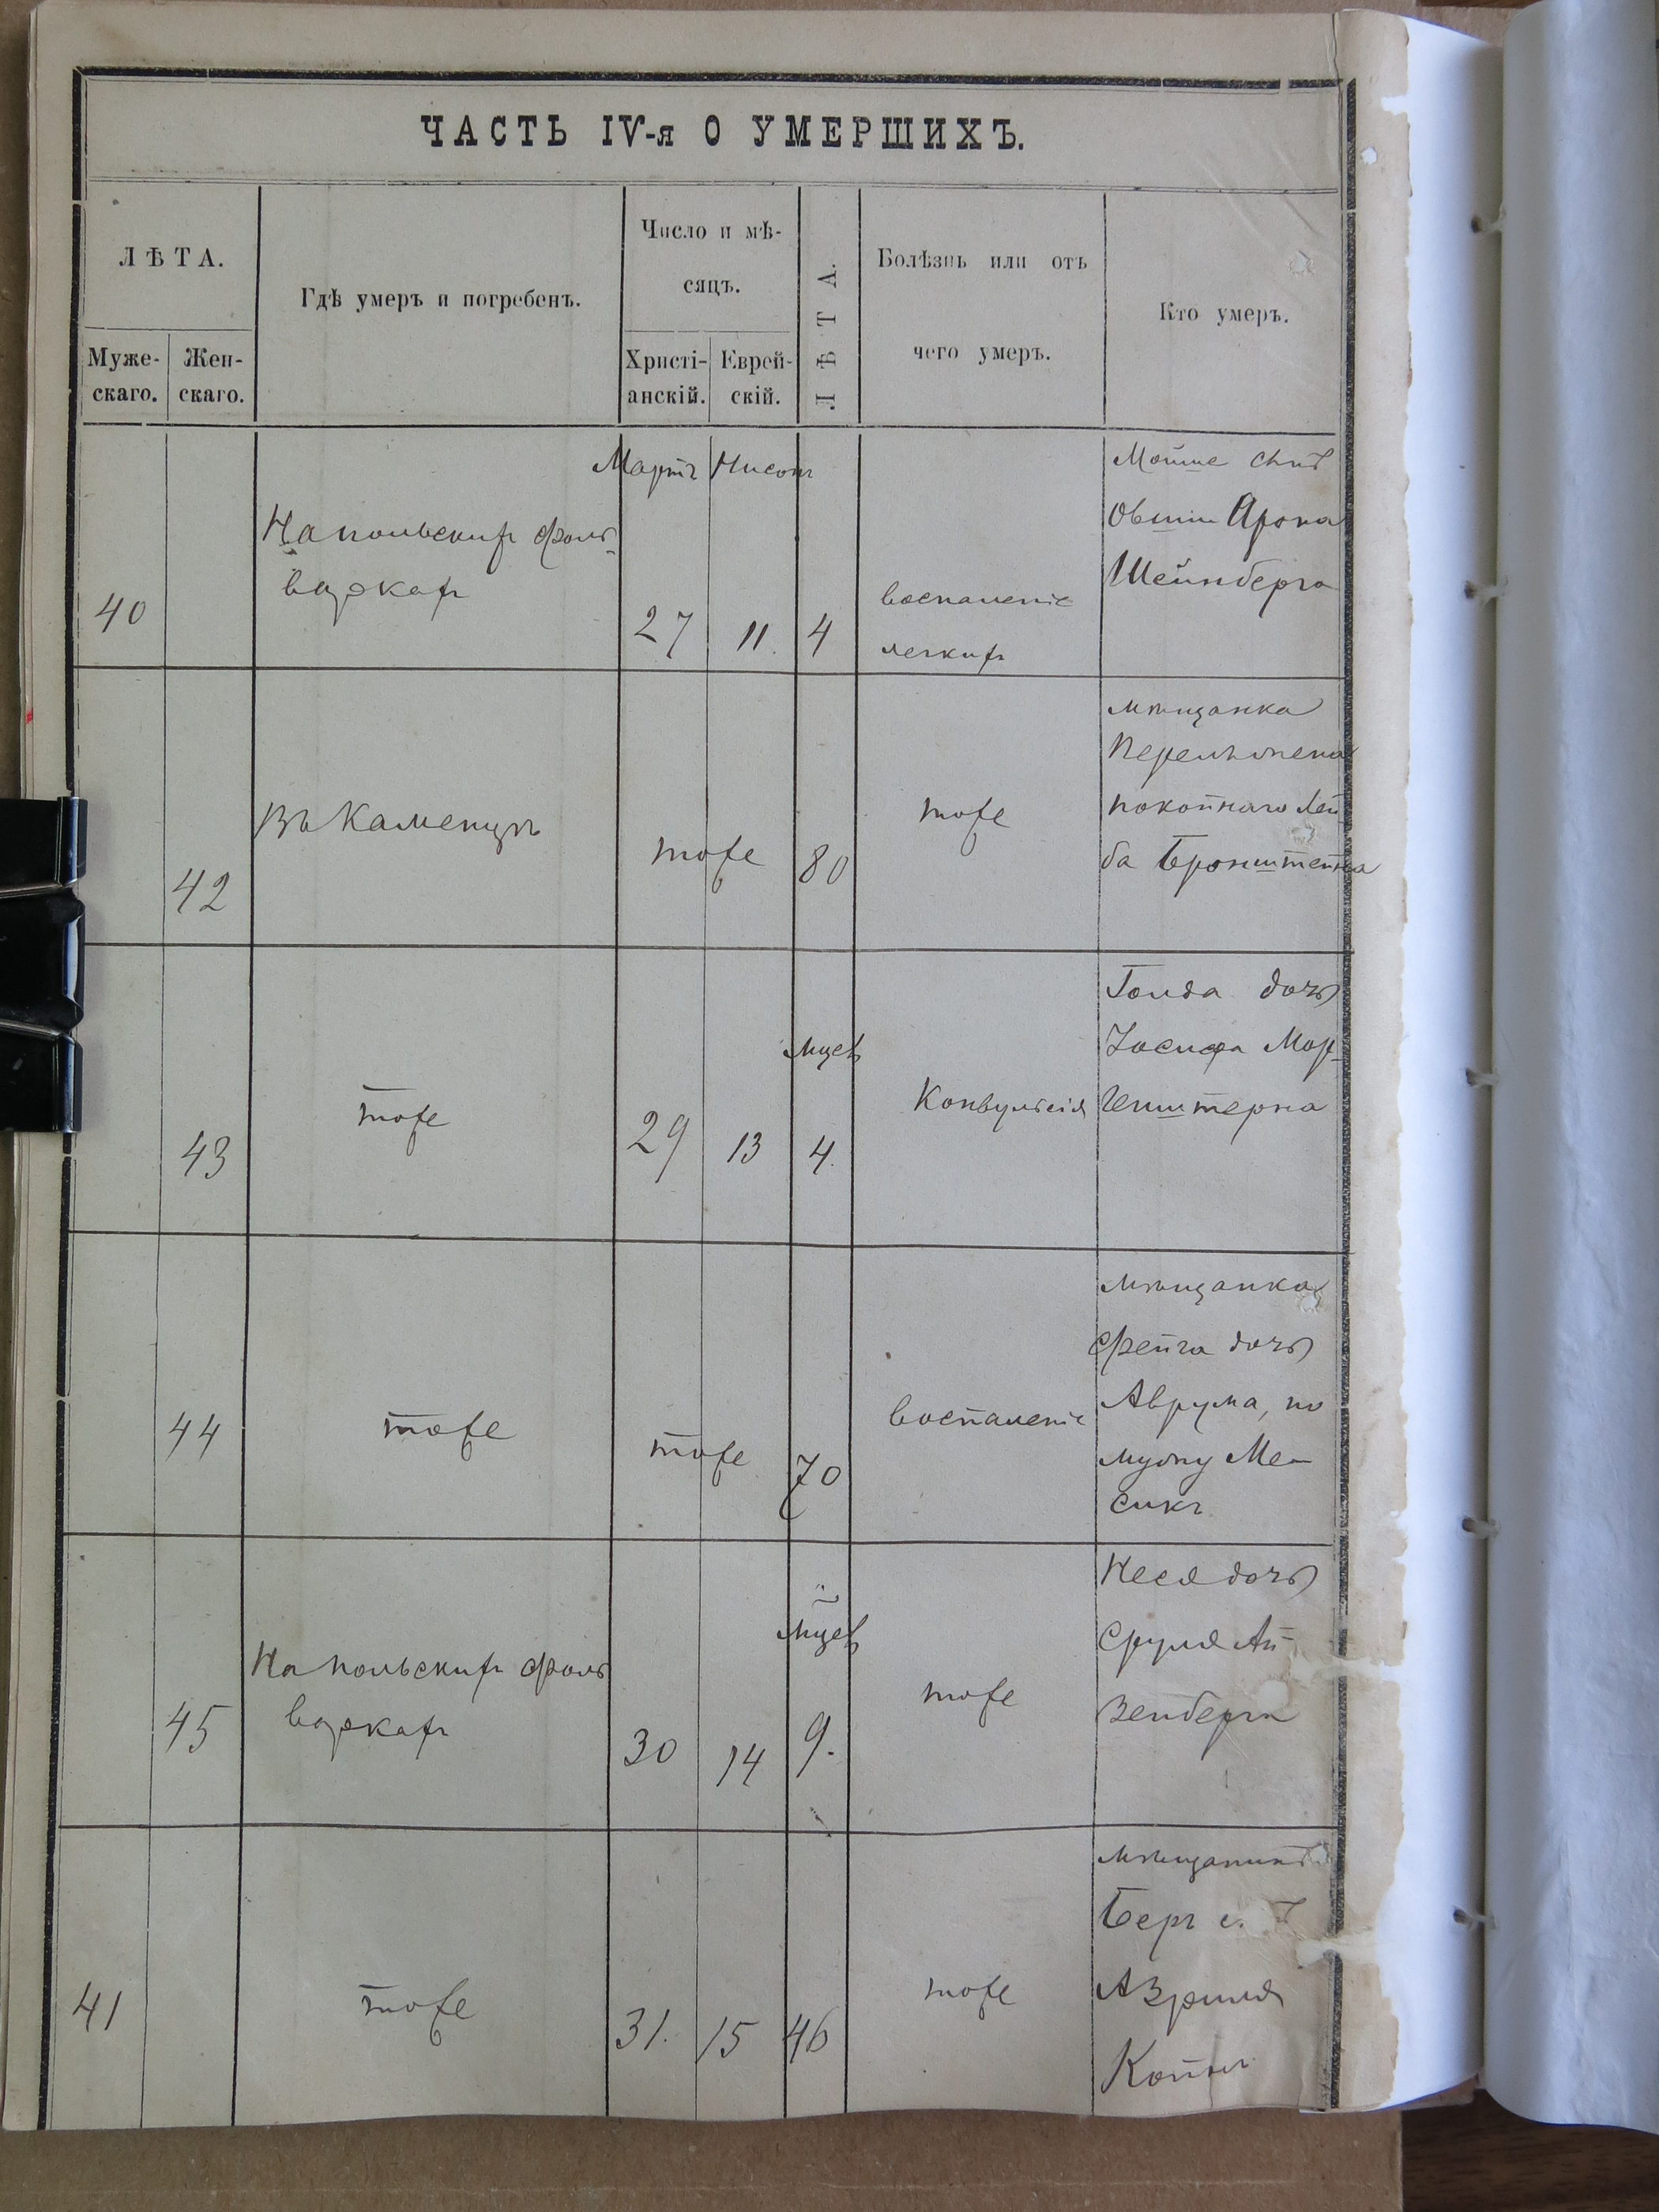 ЧАСТЬ IV-я О УМЕРШИХЪ.
ЛѢТА.
Муже-
скаго.
Жен-
скаго.
Гдѣ умеръ и погребенъ.
Число и мѣ-
сяцъ.
Христі-
анскій.
Еврей-
скій.
ЛѢТА.
Болѣзнь или отъ
чего умеръ.
Кто умеръ.
Мартъ Нисонъ
40
На польскихъ фоль-
варкахъ
27 11. 4
воспаленіе
легкихъ
Мошше сынъ
Овшіи Арона
Шейнберга
42
Въ Каменцѣ
тоже
80
тоже
мѣщанка
Перель жена
покойнаго Лей
ба Бронштейна
43
тоже
29 13
мцев
4.
Конвульсія
Голда дочь
Іосифа Мор-
генштерна
44
тоже
тоже
70
воспаленіе
мѣщанка
Фейга дочь
Аврума, по
мужу Ме-
сикъ
45
На польскихъ фоль
варкахъ
30 14
мцев
9.
тоже
Неся дочь
Сруля Ай-
зенберга
41
тоже
31. 15 46
тоже
мѣщанинъ
Беръ с.
Азриля